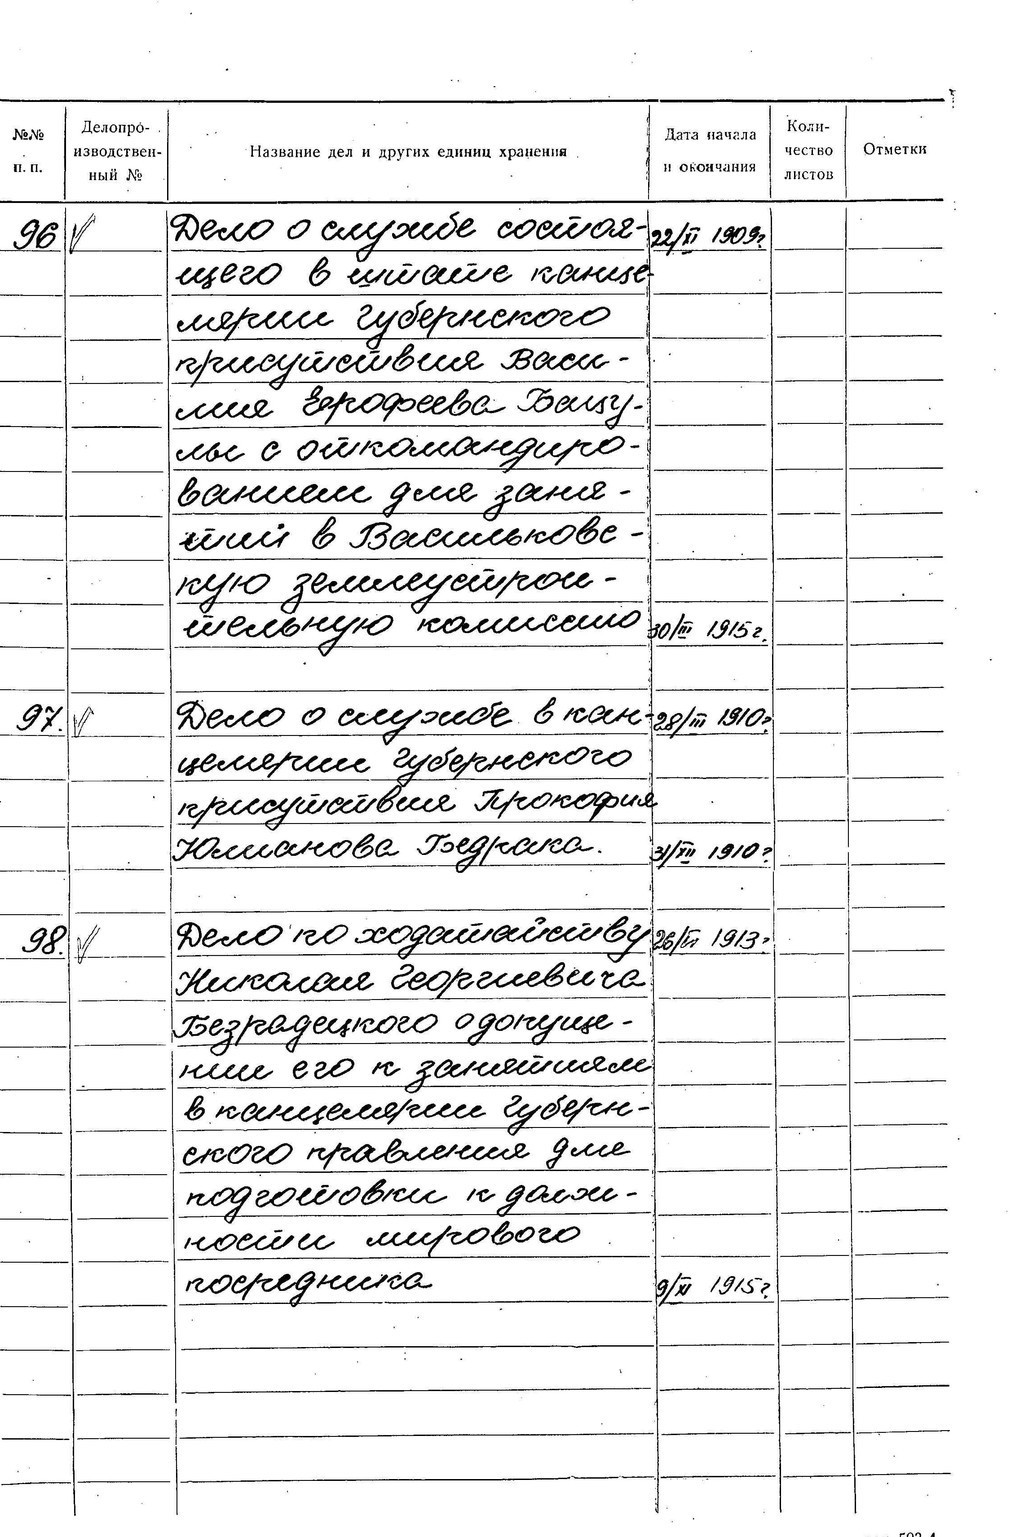 №№ п. п. Делопро- изводствен- ный № Название дел и других единиц хранения Дата начала и окончания Коли- чество листов Отметки
96 Дело о службе состоя- 22/XI 1909г.
щего в штате канце-
лярии Губернского
присутствия Васи-
лия Ерофеева Бацу-
лы с откомандиро-
ванием для заня-
тий в Васильковс-
кую землеустрои-
тельную комиссию 30/III 1915г.
97. Дело о службе в кан- 28/III 1910г.
целярии Губернского
присутствия Прокофия
Юлианова Бедрака. 31/XII 1910г.
98. Дело по ходатайству 26/VI 1913г.
Николая Георгиевича
Безрадецкого о допуще-
нии его к занятиям
в канцелярии Губерн-
ского правления для
подготовки к долж-
ности мирового
посредника 9/XI 1915г.